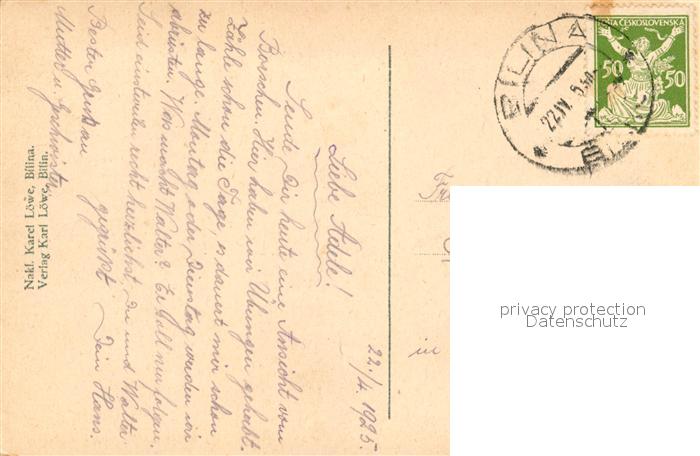 22./4. 1925.
Liebe Adele!
Sende Dir heute eine Ansicht vom
Borschen. Hier haben wir Übungen gehabt.
Zähle schon die Tage, es dauert mir schon
zu lange. Montag oder Dienstag werden wir
abrüsten. Was macht Walter? Er soll nur folgen.
Seid einstweilen recht herzlichst, Du und Walter
gegrüßt Dein Hans.
Besten Gruß an
Mutter u.
Nakl. Karel Löwe, Bílina.
Verlag Karl Löwe, Bilin.
POŠTA ČESKOSLOVENSKÁ
50 50
BÍLINA
22.IV.
in
privacy protection
Datenschutz